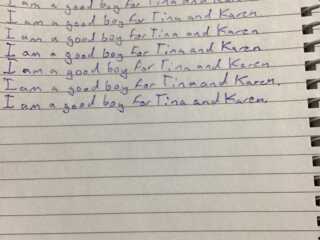 I am a good boy for Tina and Karen
I am a good boy for Tina and Karen
I am a good boy for Tina and Karen
I am a good boy for Tina and Karen
I am a good boy for Tina and Karen
I am a good boy for Tina and Karen.
I am a good boy for Tina and Karen.